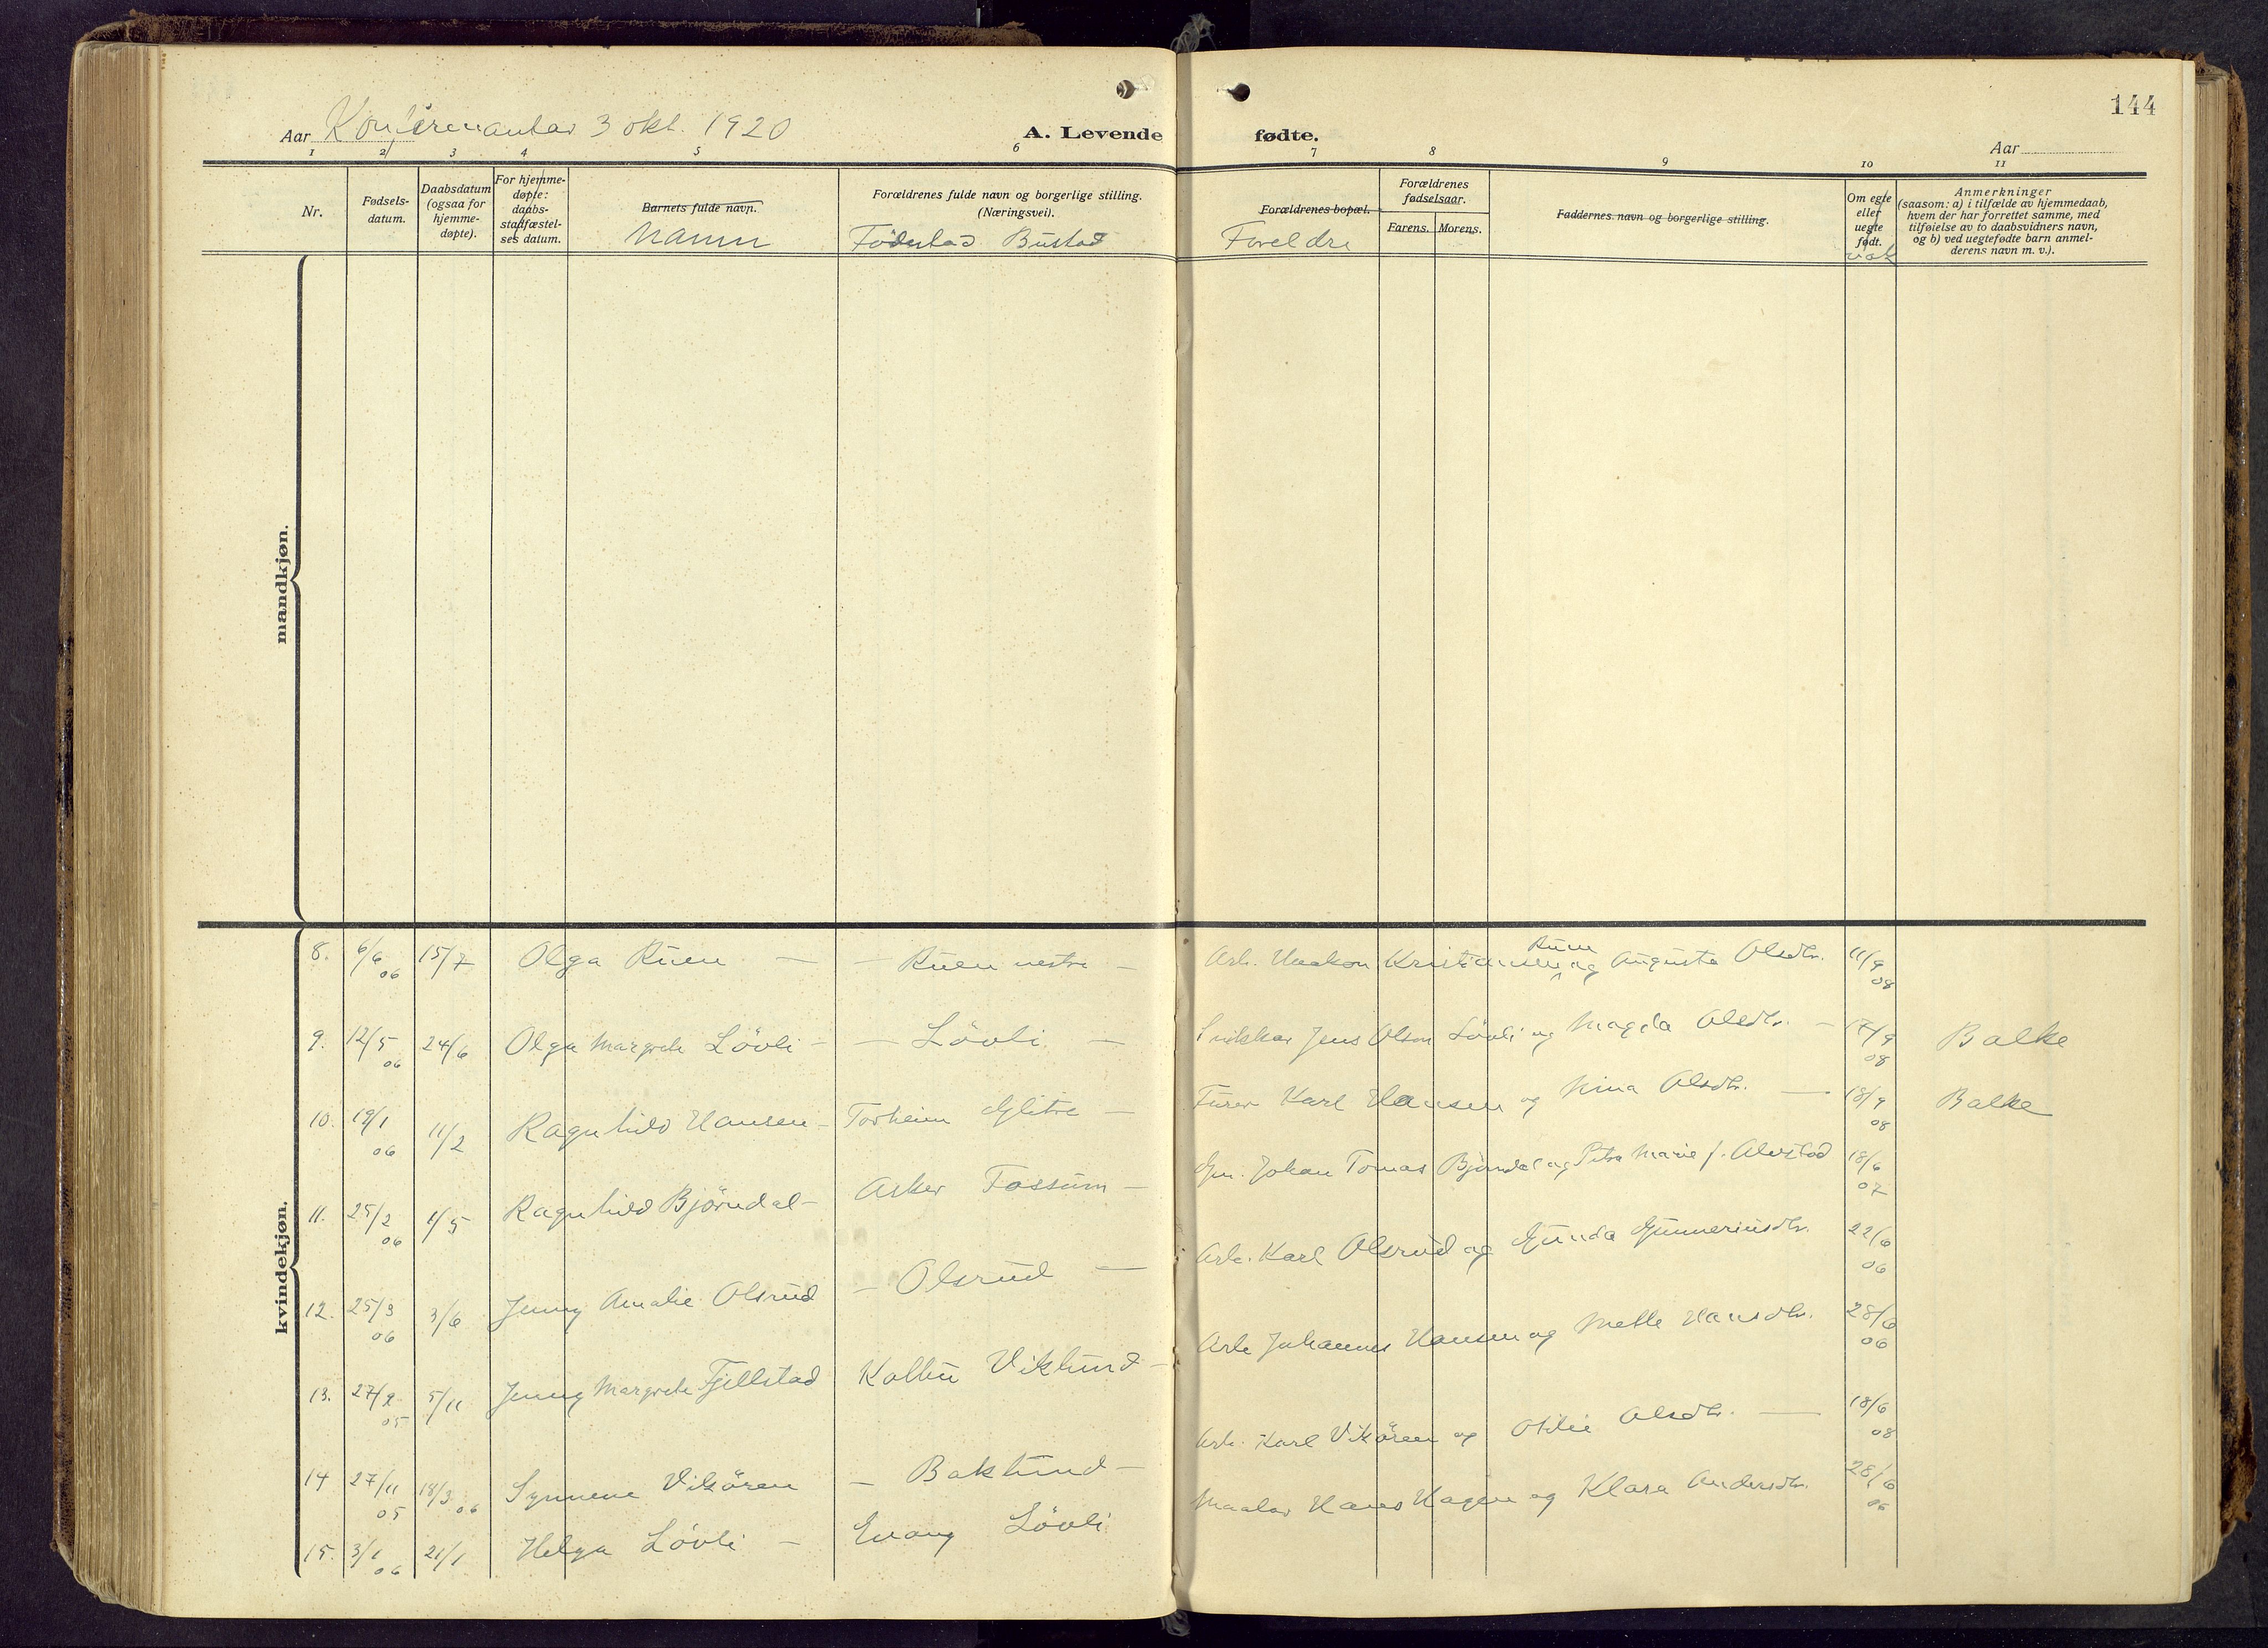 144
Aar Konfirmantar 3 okt. 1920
A. Levende fødte.
Aar
1 2 3 4 5 6 7 8 9 10 11
Nr.
Fødsels-
datum.
Daabsdatum
(ogsaa for
hjemme-
døpte).
For hjemme-
døpte:
daabs-
stadfæstel-
ses datum.
Barnets fulde navn.
Namn
Forældrenes fulde navn og borgerlige stilling.
(Næringsvei).
Fødestad Bustad
Forældrenes bopæl.
Foreldre
Forældrenes
fødselsaar.
Farens. Morens.
Faddernes navn og borgerlige stilling.
Om egte
eller
uegte
født.
vak
Anmerkninger
(saasom: a) i tilfælde av hjemmedaab,
hvem der har forrettet samme, med
tilføielse av to daabsvidners navn,
og b) ved uegtefødte barn anmel-
derens navn m. v.).
mandkjøn.
kvindekjøn.
8. 6/6 06 15/7 Olga Ruen — — Ruen nestre — Arb. Haakon Kristiansen Ruen og Augusta Olsdtr. 11/9 08
9. 12/5 06 24/6 Olga Margrete Lövli — — Lövli — Snikkar Jens Olsen Lövli og Magda Olsdtr. — 17/9 08 Balke
10. 19/1 06 11/2 Ragnhild Hansen — Torheim Glitre — Furer Karl Hansen og Nina Olsdtr. — 18/9 08 Balke
11. 25/2 06 1/5 Ragnhild Björndal — Asker Fossum — Gm. Johan Tomas Björndal og Petra Marie f. Alvstad 18/6 07
12. 25/3 06 3/6 Jenny Amalie Olsrud — Olsrud — Arb. Karl Olsrud og Gunda Gunneriusdtr. 22/6 06
13. 27/9 05 5/11 Jenny Margrete Fjellstad Kolbu Viklund — Arb. Johannes Hansen og Mette Hansdtr. 28/6 06
14 27/11 05 18/3 06 Synnene Viksören — Baklund — Arb. Karl Viksören og Otilie Olsdtr. — 18/6 08
15. 3/1 06 21/1 Helga Lövli — Evang Lövli Maalar Hans Hagen og Klara Andersdtr. 28/6 06